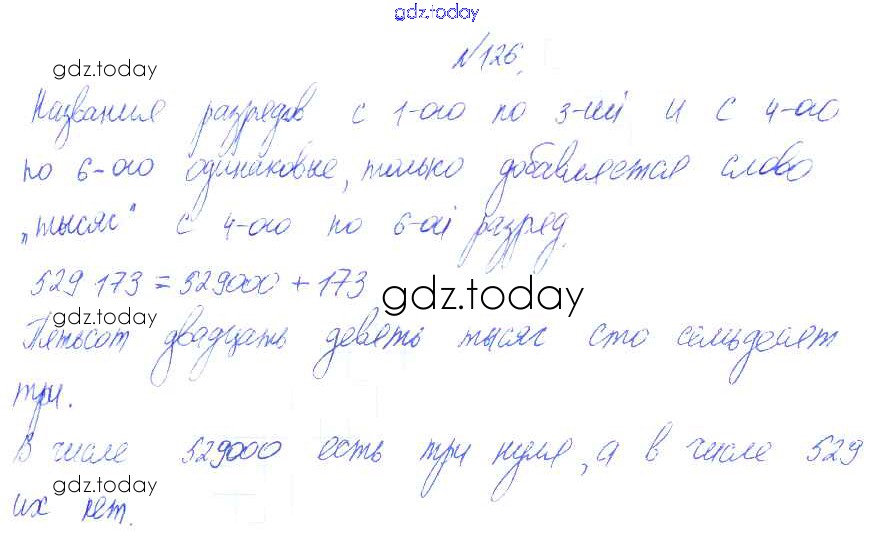 gdz.today
№126.
gdz.today
Названия разрядов с 1-ого по 3-ий и с 4-ого
по 6-ого одинаковые, только добавляется слово
„тысяч" с 4-ого по 6-ой разряд.
529 173 = 529000 + 173
gdz.today
gdz.today
Пятьсот двадцать девять тысяч сто семьдесят
три.
В числе 529000 есть три нуля, а в числе 529
gdz.today
их нет.